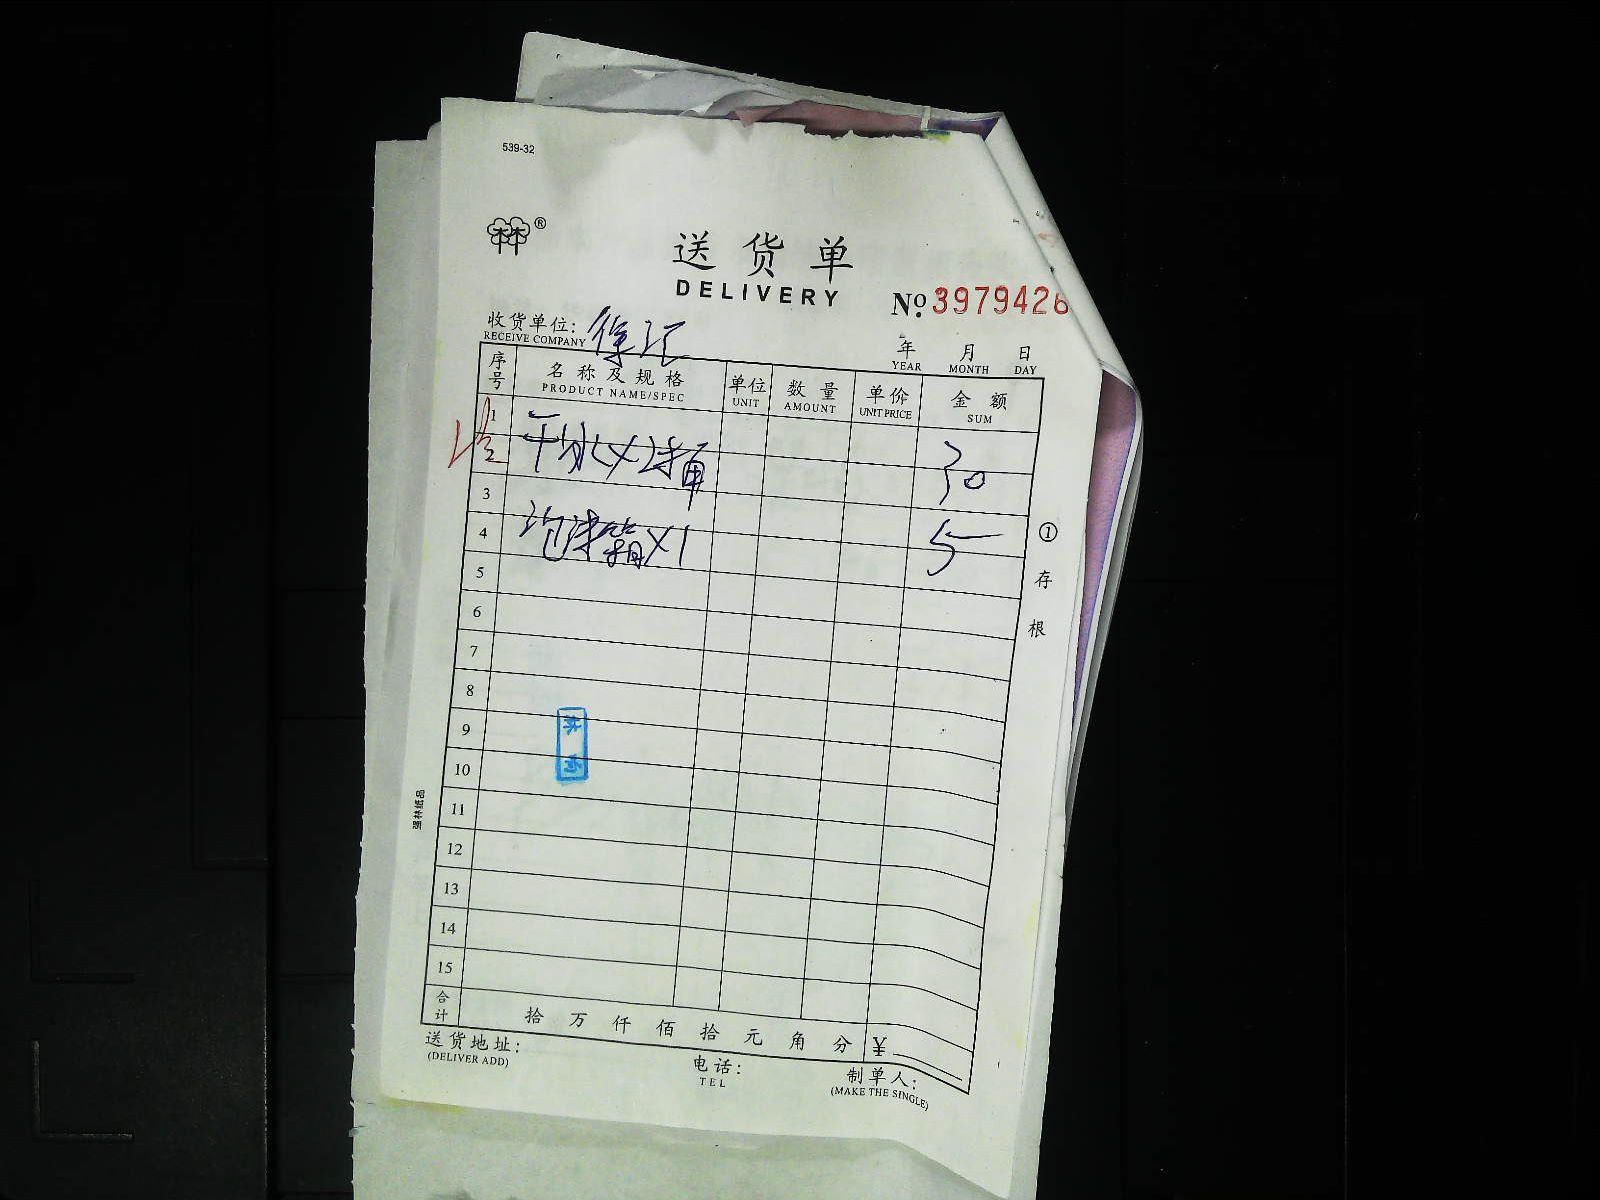 539-32
®
送货单
DELIVERY
№ 3979426
收货单位: 徐记
RECEIVE COMPANY
年 月 日
YEAR MONTH DAY
序号 名称及规格 单位 数量 单价 金额
PRODUCT NAME/SPEC UNIT AMOUNT UNIT PRICE SUM
1
2 干冰(X)2桶 30
3
4 泡沫箱X1 5
5
6
7
8
9
10
11
12
13
14
15
合计 拾 万 仟 佰 拾 元 角 分 ¥
送货地址: 电话: 制单人:
(DELIVER ADD) TEL (MAKE THE SINGLE)
①存根
强林纸品